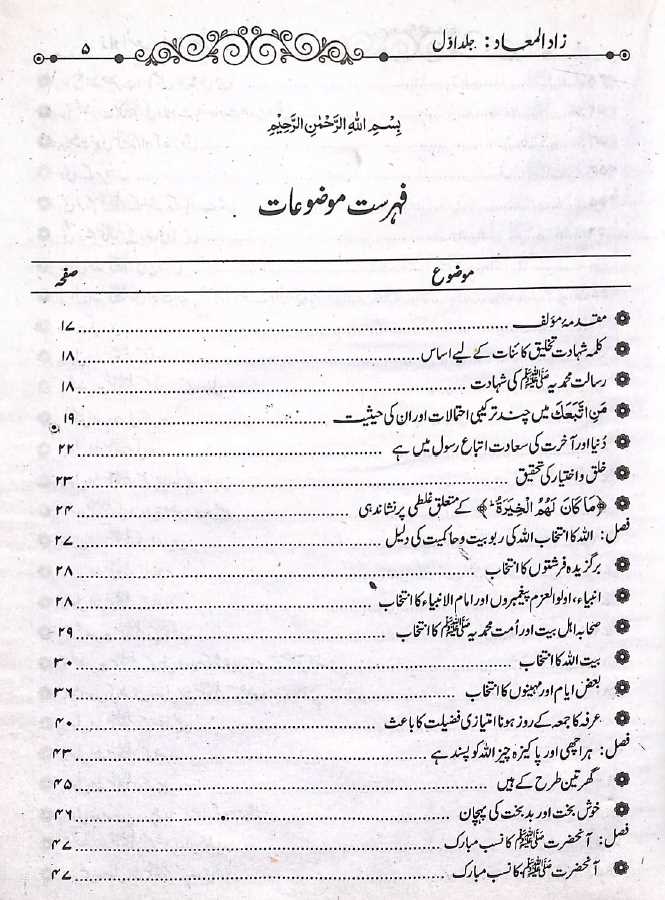 زاد المعاد: جلد اوّل ۵
بِسْمِ اللهِ الرَّحْمٰنِ الرَّحِيْمِ
فہرست موضوعات
موضوع صفحہ
مقدمۂ مؤلف ۱۷
کلمہ شہادت تخلیق کائنات کے لیے اساس ۱۸
رسالت محمدیہ ﷺ کی شہادت ۱۸
مَنِ اتَّبَعَكَ میں چند ترکیبی احتمالات اور ان کی حیثیت ۱۹
دُنیا اور آخرت کی سعادت اتباع رسول میں ہے ۲۲
خلق و اختیار کی تحقیق ۲۳
﴿مَا كَانَ لَهُمُ الْخِيَرَةُ﴾ کے متعلق غلطی پر نشاندہی ۲۴
فصل: اللہ کا انتخاب اللہ کی ربوبیت و حاکمیت کی دلیل ۲۷
برگزیدہ فرشتوں کا انتخاب ۲۸
انبیاء، اولوالعزم پیغمبروں اور امام الانبیاء کا انتخاب ۲۸
صحابہ اہل بیت اور اُمت محمدیہ ﷺ کا انتخاب ۲۹
بیت اللہ کا انتخاب ۳۰
بعض ایام اور مہینوں کا انتخاب ۳۶
عرفہ کا جمعہ کے روز ہونا امتیازی فضیلت کا باعث ۴۰
فصل: ہر اچھی اور پاکیزہ چیز اللہ کو پسند ہے ۴۳
گھر تین طرح کے ہیں ۴۵
خوش بخت اور بدبخت کی پہچان ۴۶
فصل: آنحضرت ﷺ کا نسب مبارک ۴۷
آنحضرت ﷺ کا نسب مبارک ۴۷